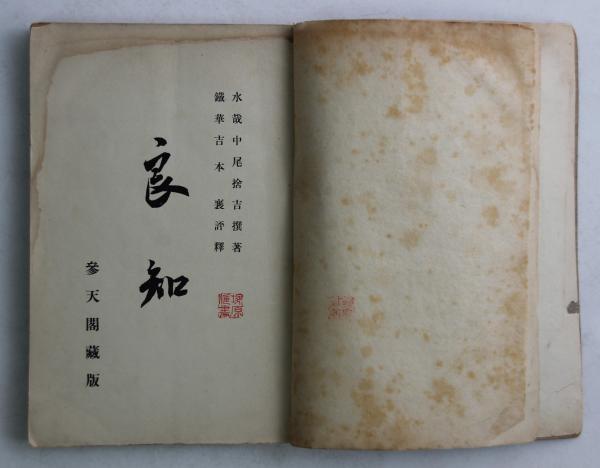 水哉中尾捨吉撰著
鐵華吉本襄評釋
良知
參天閣藏版